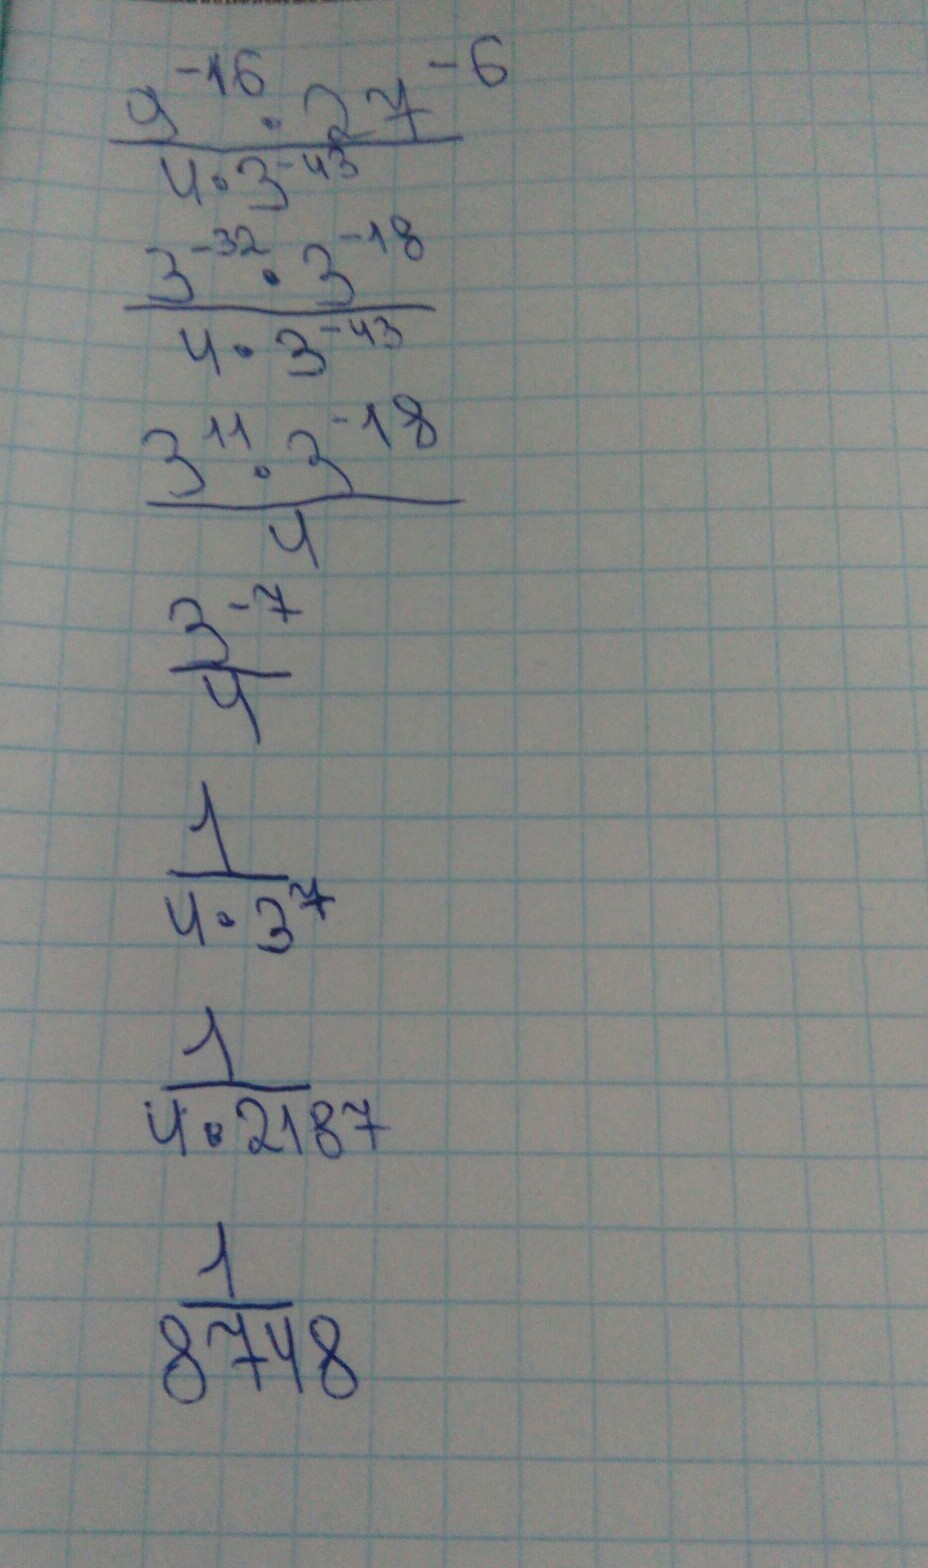 9^-16 · 27^-6
4 · 3^-43
3^-32 · 3^-18
4 · 3^-43
3^11 · 3^-18
4
3^-7
4
1
4 · 3^7
1
4 · 2187
1
8748